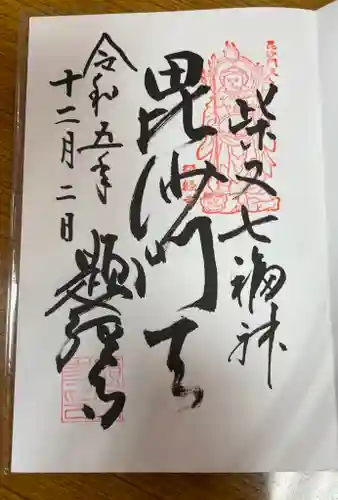 柴又七福神
毘沙門天
題経寺
令和五年
十二月二日